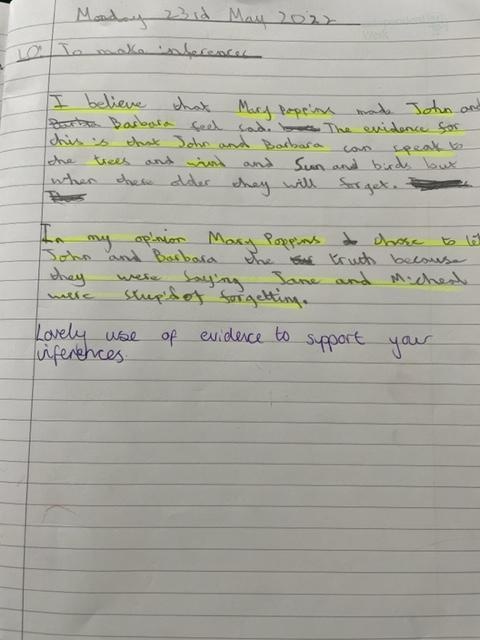 Monday 23rd May 2022
LO: To make inferences
I believe that Mary Poppins made John and
Barbara feel sad. The evidence for
this is that John and Barbara can speak to
the trees and wind and Sun and birds but
when these older they will forget.
In my opinion Mary Poppins chose to let
John and Barbara the truth because
they were saying Jane and Micheal
were stupid of forgetting.
Lovely use of evidence to support your
inferences.